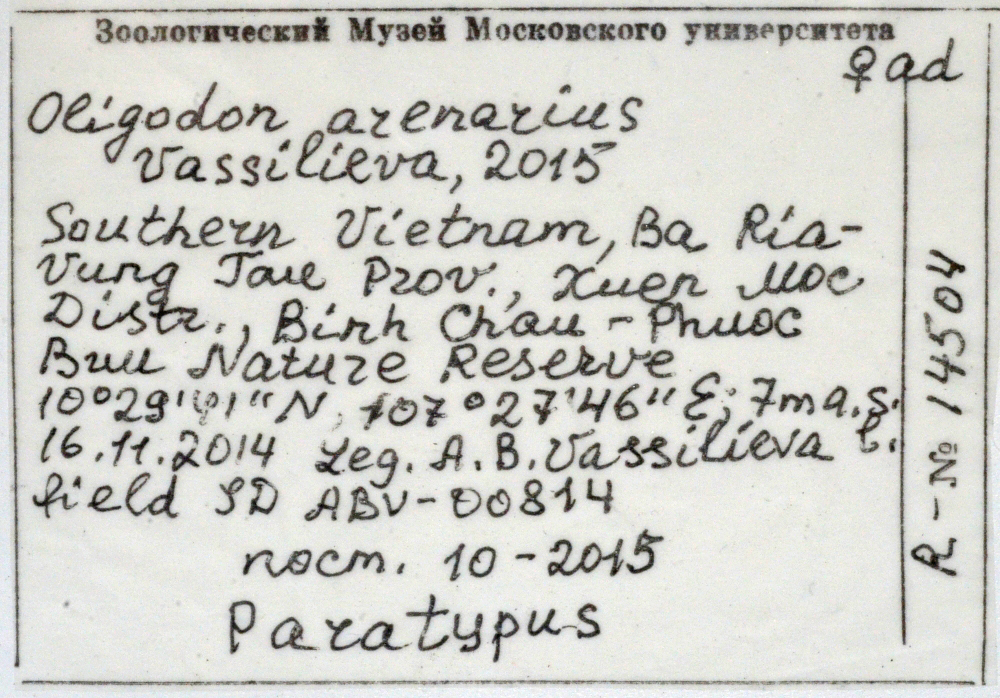 Зоологический Музей Московского университета
♀ ad
Oligodon arenarius
Vassilieva, 2015
Southern Vietnam, Ba Ria-
Vung Tau Prov., Xuen Moc
Distr., Binh Chau - Phuoc
Buu Nature Reserve
10°29'41"N, 107°27'46"E; 7m a.s.
16.11.2014 Leg. A.B.Vassilieva l.
field ID ABV-00814
пост. 10-2015
Paratypus
R-№ 14504